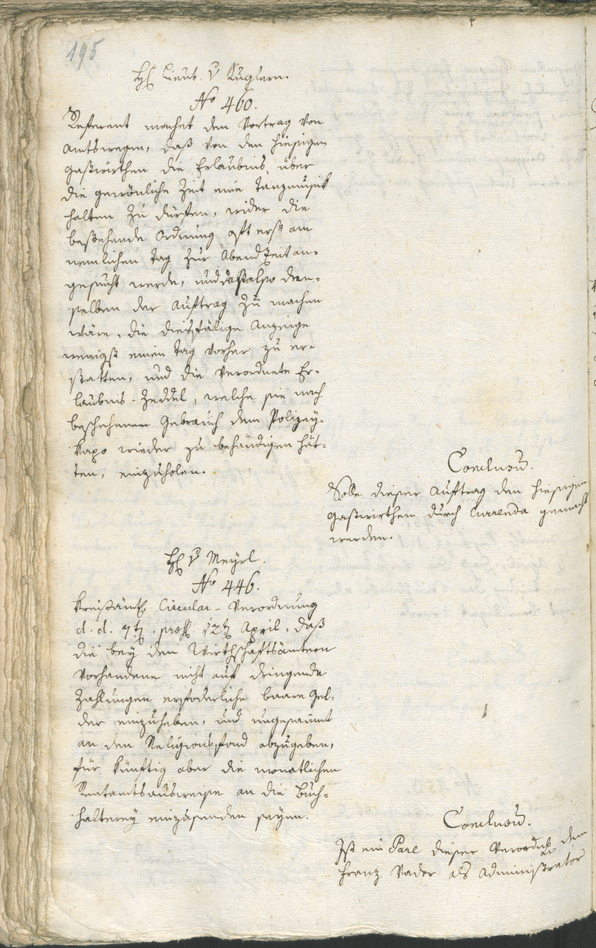 195
H. Lieut. v Kuglern.
No 460.
Referent machet den Vortrag von
Amtswegen, daß von den hiesigen
Gastwirthen die Erlaubnis, über
die gewönliche Zeit eine Tanzmusik
halten zu dürfen, wider die
bestehende Ordnung oft erst am
nemlichen Tag zur Abendzeit an-
gesucht werde, und daß also den-
selben der Auftrag zu machen
wäre, die dießfälige Anzeige
wenigst einen Tag vorher zu er-
statten, und die verordnete Er-
laubnis-Zeddel, welche sie nach
beschehenen Gebrauch dem Polizey-
kapo wieder zu behändigen hät-
ten, einzuholen.
Conclusum.
Solle dieser Auftrag den hiesigen
Gastwirthen durch Currenda gemacht
werden.
H. v Meyrl.
No 446.
Kreisämtl. Circular-Verordnung
d. d. 7t. praes. 12t. April, daß
die bey den Wirthschaftsämtern
vorhandene nicht auf dringende
Zahlungen erforderliche baare Gel-
der einzuheben, und ungesäumt
an den Religionsfond abzugeben,
für künftig aber die monatlichen
Rentamtsausweise an die Buch-
halterey einzusenden seyen.
Conclusum.
Ist ein Pare dieser Verordnung dem
Franz Nader als Administrator